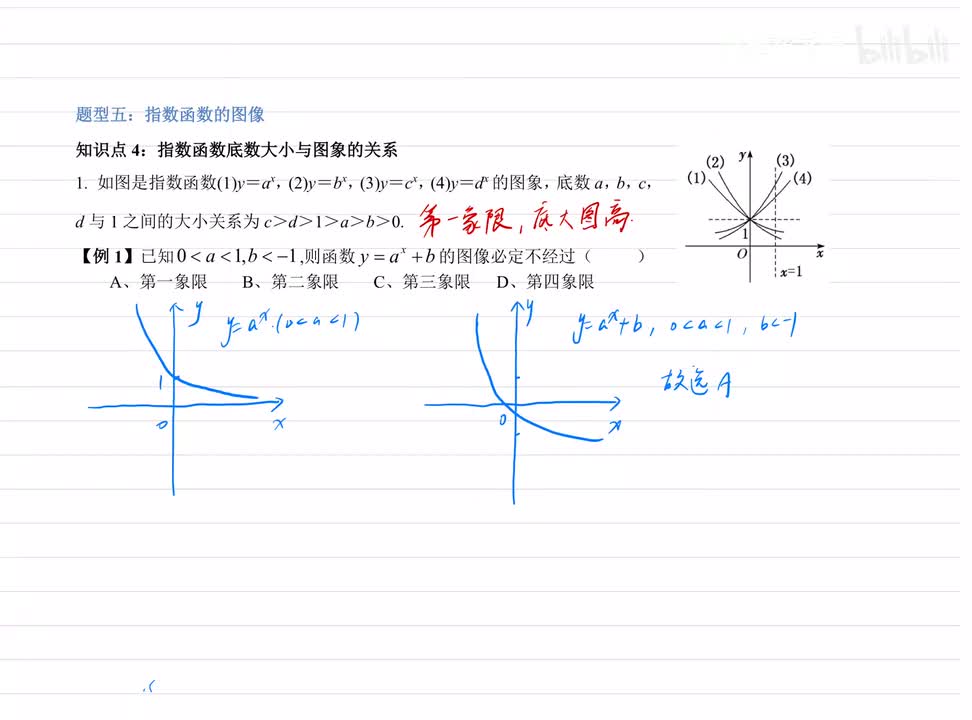 bilibili
题型五：指数函数的图像
知识点 4：指数函数底数大小与图象的关系
1. 如图是指数函数(1)y＝aˣ，(2)y＝bˣ，(3)y＝cˣ，(4)y＝dˣ 的图象，底数 a，b，c，
d 与 1 之间的大小关系为 c＞d＞1＞a＞b＞0.
第一象限，底大图高.
(2) y (3)
(1) (4)
1
O x
x=1
【例 1】已知 0 < a < 1, b < −1 ,则函数 y = aˣ + b 的图像必定不经过（ ）
A、第一象限 B、第二象限 C、第三象限 D、第四象限
y y=aˣ.(0<a<1)
1
0 x
y y=aˣ+b, 0<a<1, b<-1
故选 A
0 x